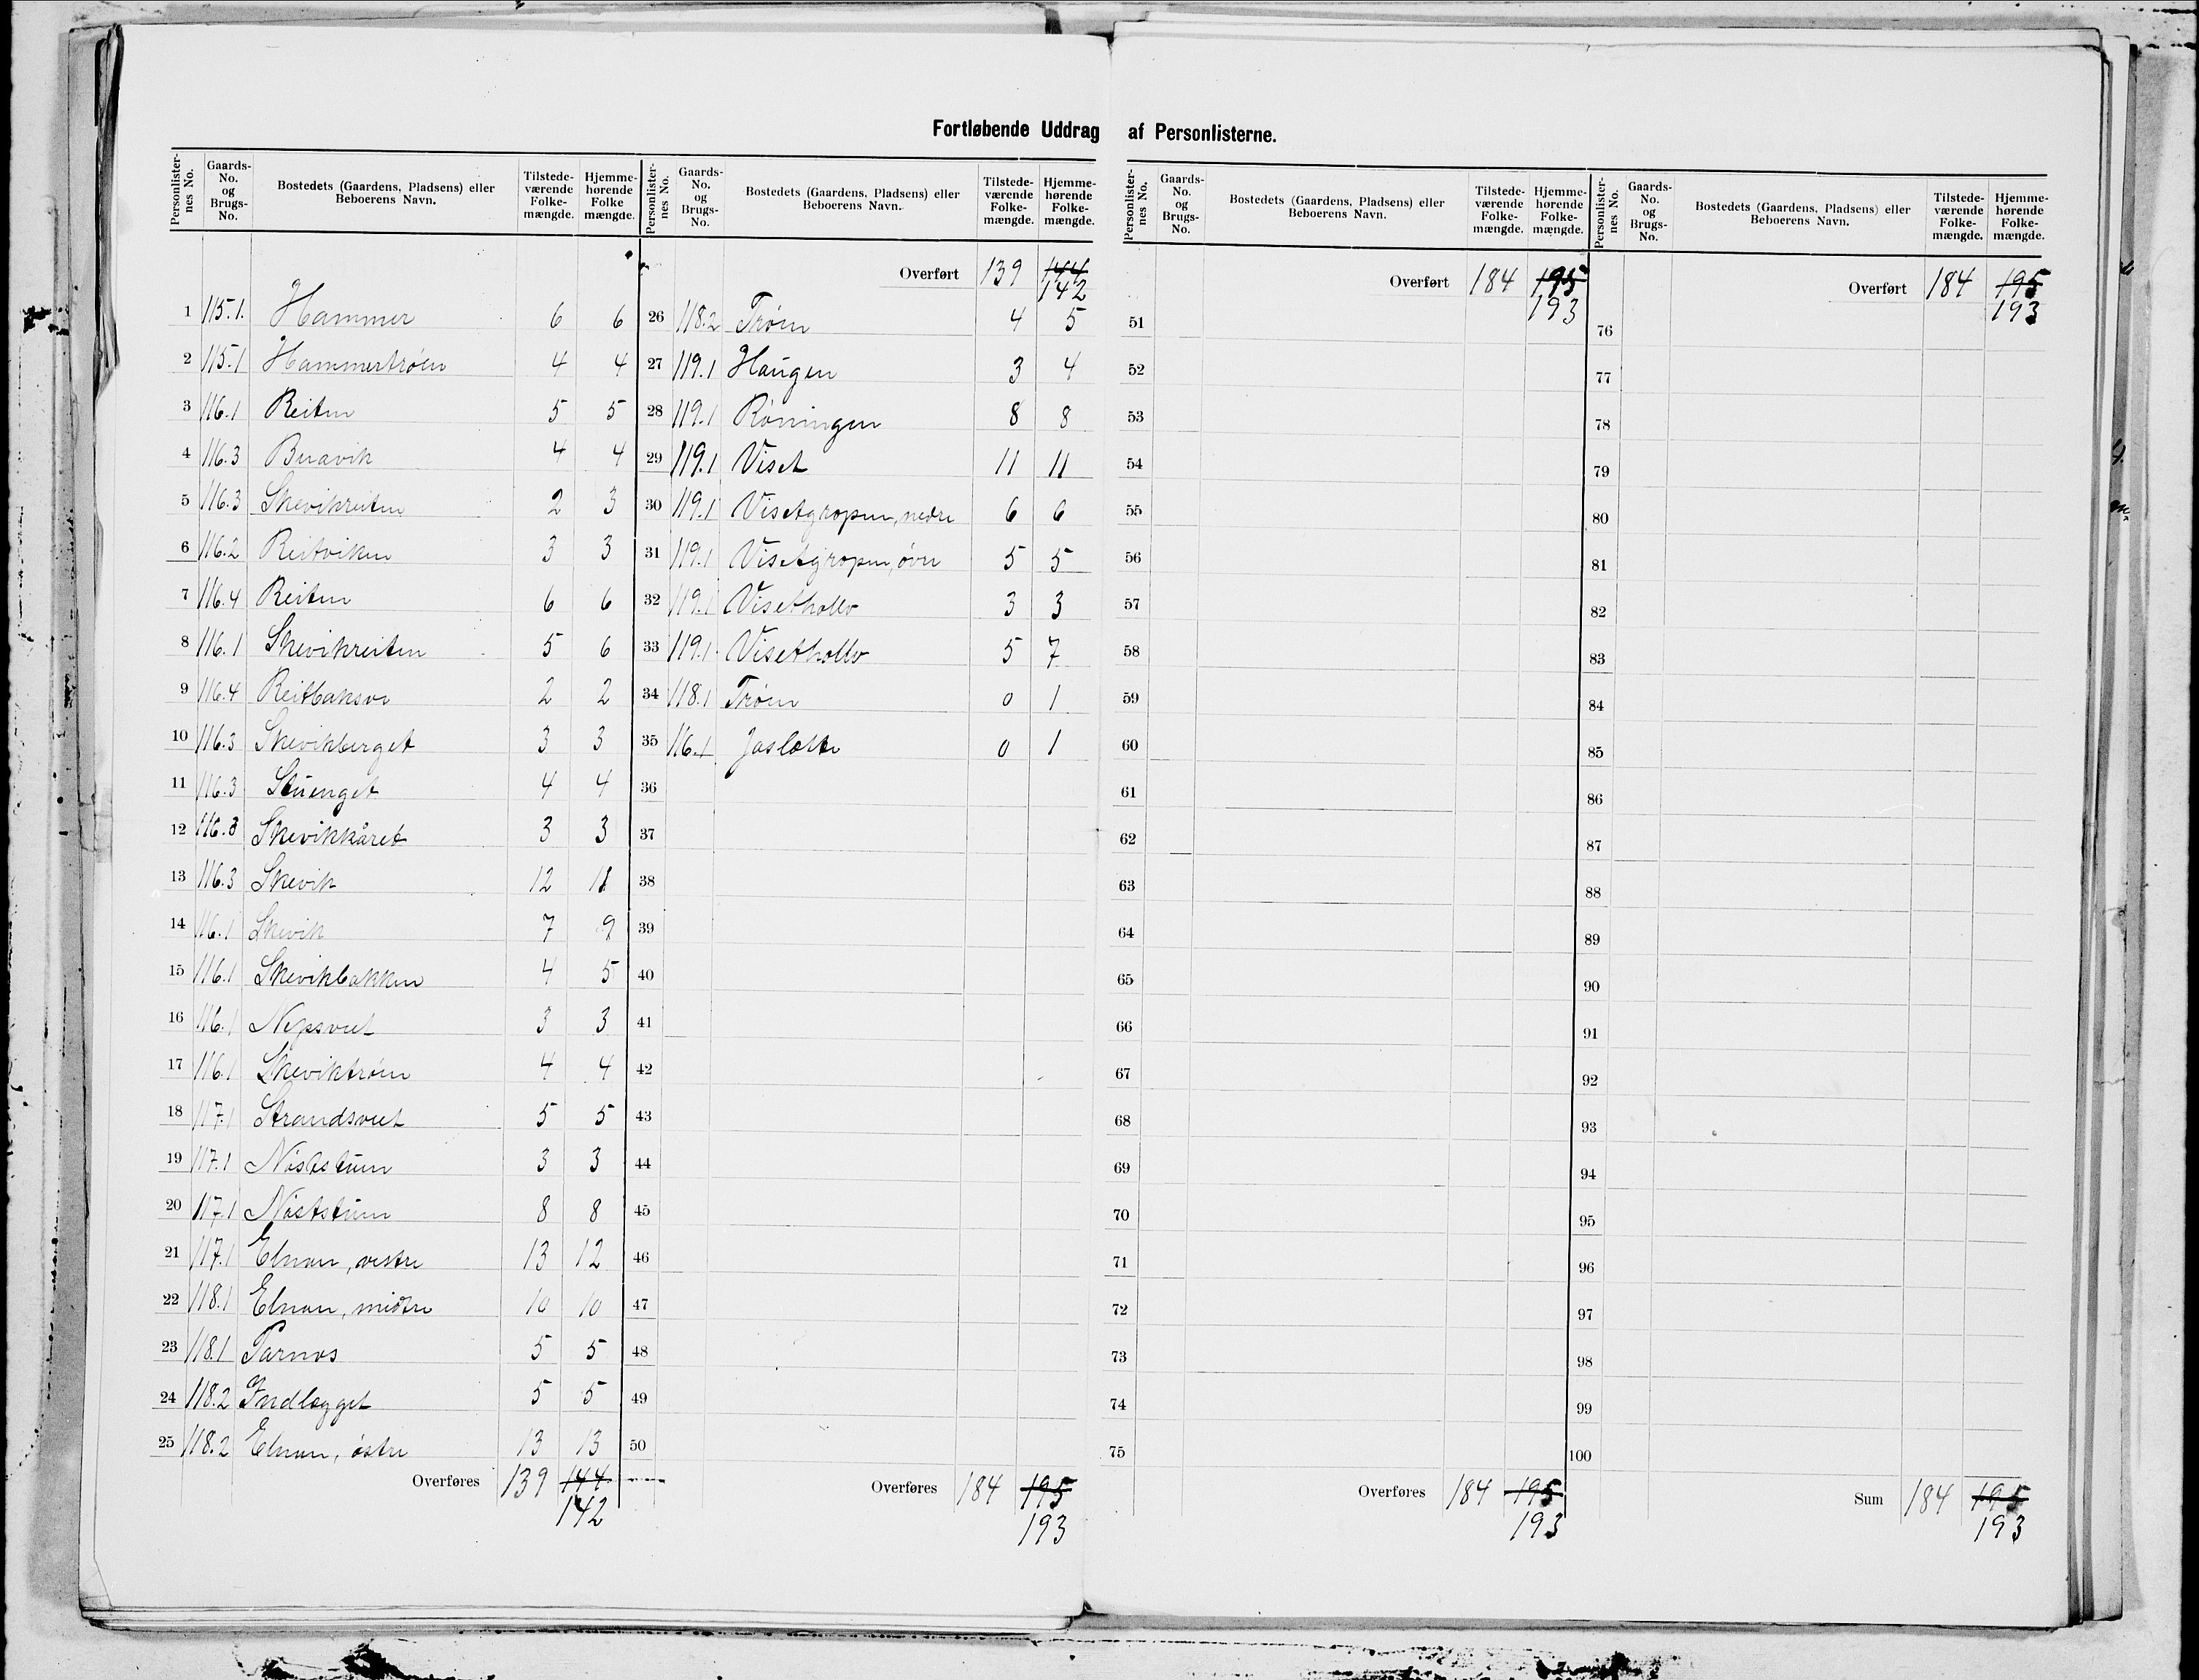 Fortløbende Uddrag af Personlisterne.
Personlister-nes No. Gaards-No. og Brugs-No. Bostedets (Gaardens, Pladsens) eller Beboerens Navn. Tilstede-værende Folke-mængde. Hjemme-hørende Folke mængde.
1 115.1. Hammer 6 6
2 115.1 Hammertrøen 4 4
3 116.1 Reiten 5 5
4 116.3 Buavik 4 4
5 116.3 Skevikreiten 2 3
6 116.2 Reitviken 3 3
7 116.4 Reiten 6 6
8 116.1 Skevikreiten 5 6
9 116.4 Reitbaksve 2 2
10 116.3 Skevikberget 3 3
11 116.3 Stuenget 4 4
12 116.3 Skevikkåret 3 3
13 116.3 Skevik 12 11
14 116.1 Skevik 7 9
15 116.1 Skevikbakken 4 5
16 116.1 Nepsveet 3 3
17 116.1 Skeviktrøen 4 4
18 117.1 Strandsveet 5 5
19 117.1 Nøststuen 3 3
20 117.1 Nøststuen 8 8
21 117.1 Elnan, vestre 13 12
22 118.1 Elnan, midtre 10 10
23 118.1 Parnas 5 5
24 118.2 Indlægget 5 5
25 118.2 Elnan, østre 13 13
Overføres 139 144
142
Personlister-nes No. Gaards-No. og Brugs-No. Bostedets (Gaardens, Pladsens) eller Beboerens Navn. Tilstede-værende Folke-mængde. Hjemme-hørende Folke-mængde.
Overført 139 144
142
26 118.2 Trøen 4 5
27 119.1 Haugen 3 4
28 119.1 Røningen 8 8
29 119.1 Viset 11 11
30 119.1 Visetgropen, nedre 6 6
31 119.1 Visetgropen, øvre 5 5
32 119.1 Visethollo 3 3
33 119.1 Visethollo 5 7
34 118.1 Trøen 0 1
35 116.1 Jaslette 0 1
36
37
38
39
40
41
42
43
44
45
46
47
48
49
50
Overføres 184 195
193
Personlister-nes No. Gaards-No. og Brugs-No. Bostedets (Gaardens, Pladsens) eller Beboerens Navn. Tilstede-værende Folke-mængde. Hjemme-hørende Folke-mængde.
Overført 184 195
193
51
52
53
54
55
56
57
58
59
60
61
62
63
64
65
66
67
68
69
70
71
72
73
74
75
Overføres 184 195
193
Personlister-nes No. Gaards-No. og Brugs-No. Bostedets (Gaardens, Pladsens) eller Beboerens Navn. Tilstede-værende Folke-mængde. Hjemme-hørende Folke-mængde.
Overført 184 195
193
76
77
78
79
80
81
82
83
84
85
86
87
88
89
90
91
92
93
94
95
96
97
98
99
100
Sum 184 195
193